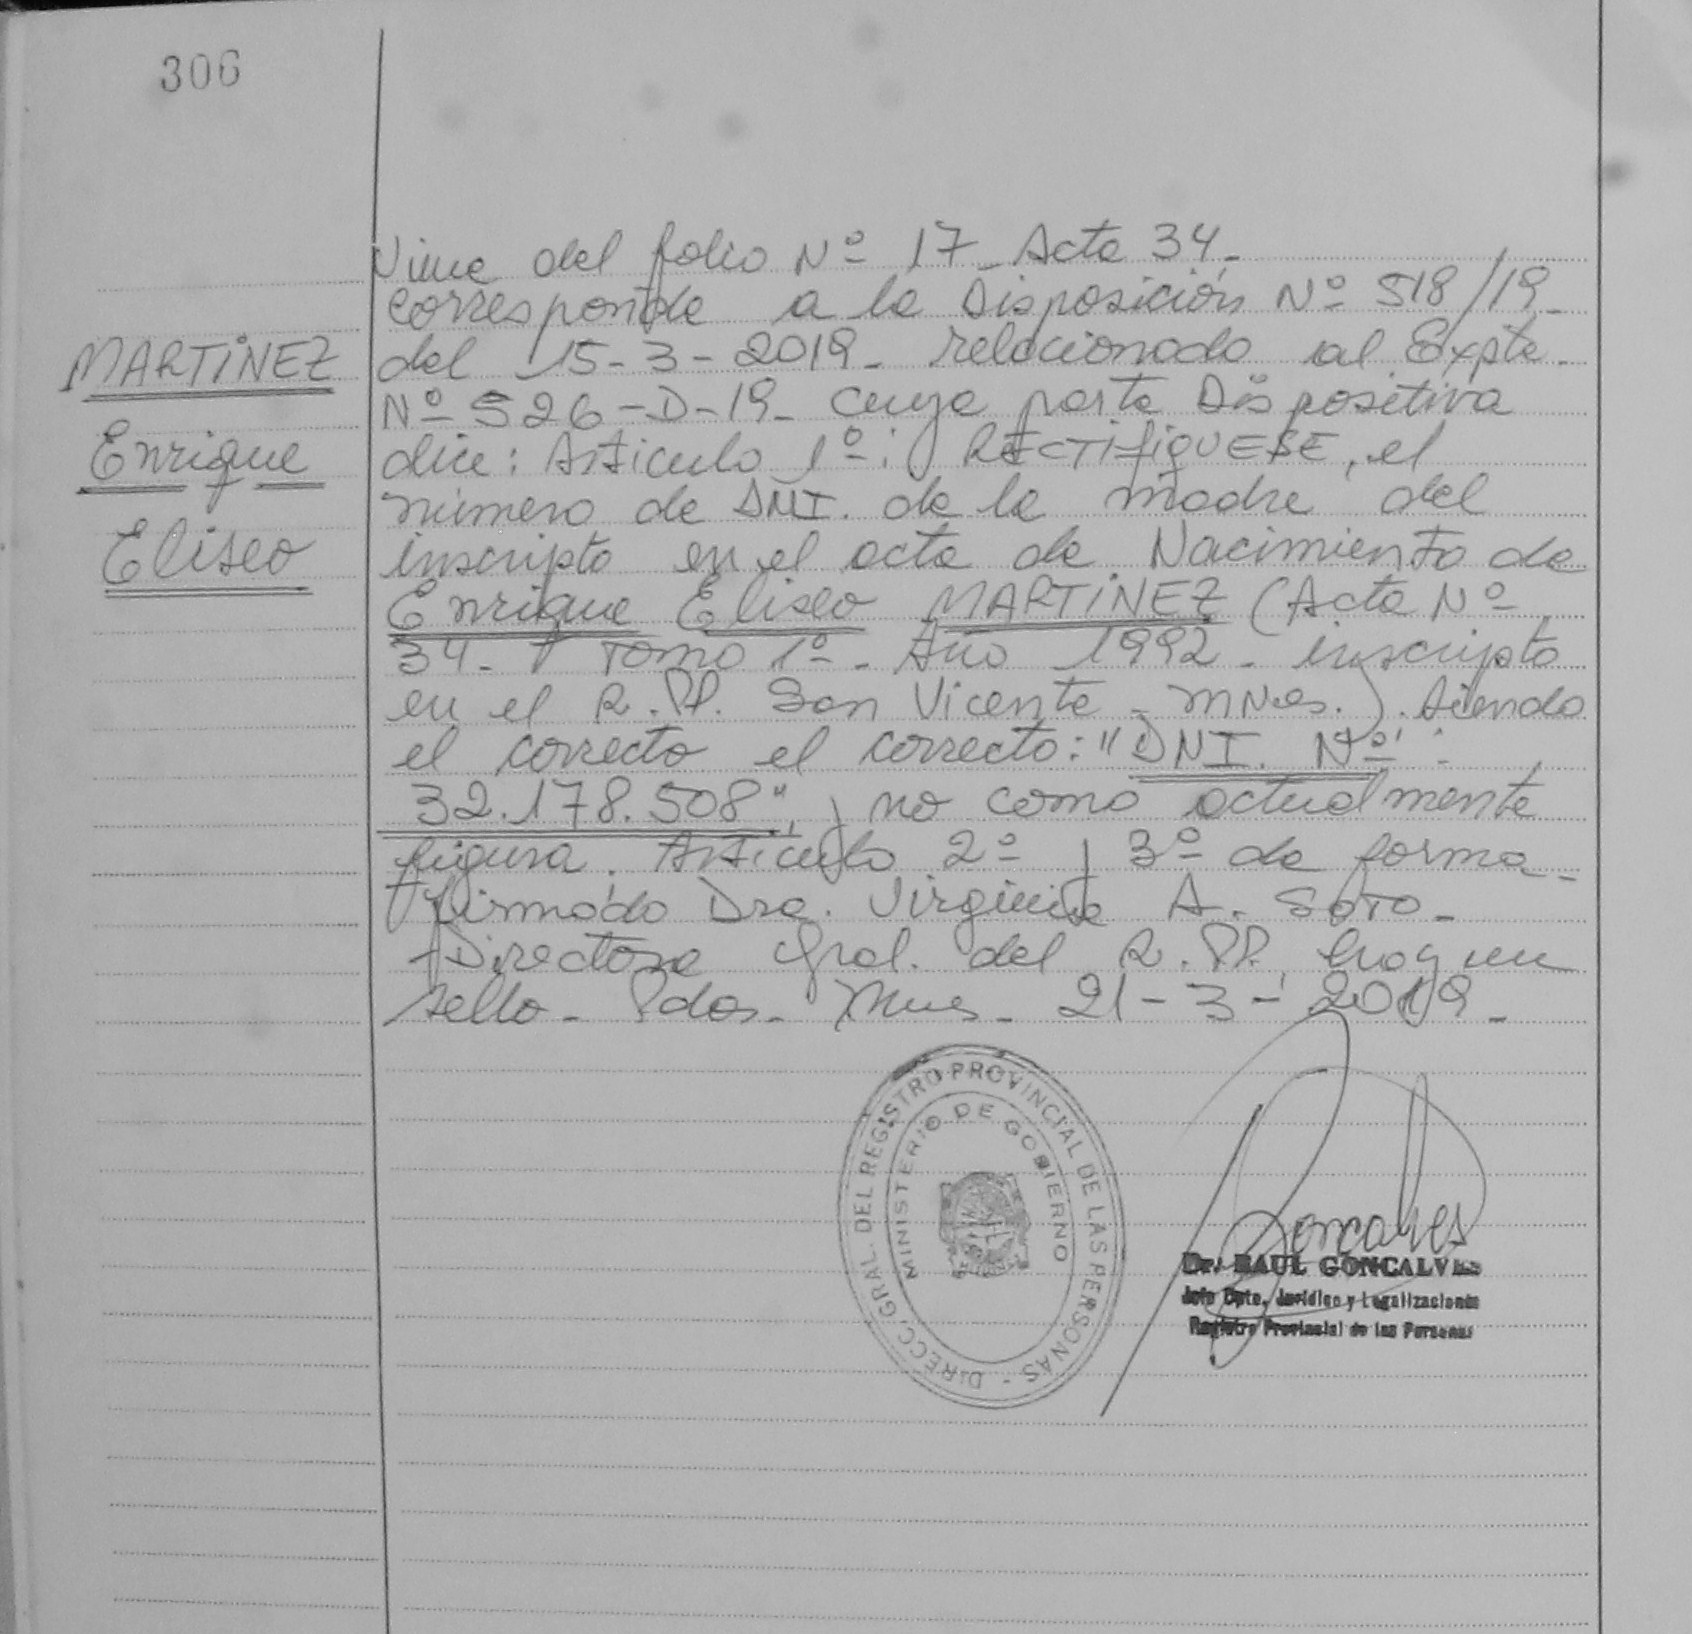 306
MARTINEZ
Enrique
Eliseo
Viene del folio Nº 17 - Acta 34 -
Corresponde a la Disposición Nº 518/19 -
del 15-3-2019 - relacionado al Expte.
Nº 526-D-19 - cuya parte Dispositiva
dice: Articulo 1º: RECTIFIQUESE, el
número de DNI. de la madre del
inscripto en el acta de Nacimiento de
Enrique Eliseo MARTINEZ (Acta Nº
34 - Tomo 1º - Año 1992 - inscripto
en el R.PP. San Vicente - Mnes.). siendo
el correcto el correcto: "DNI. Nº:
32.178.508", y no como actualmente
figura. Articulo 2º y 3º de forma -
Firmado Dra. Virginia A. Soto -
Directora Gral. del R.PP. hay un
sello - Pdas. Mnes - 21-3-2019 -
DIRECC. GRAL. DEL REGISTRO PROVINCIAL DE LAS PERSONAS -
MINISTERIO DE GOBIERNO
Goncalves
Dr. RAUL GONCALVES
Jefe Dpto. Jurídico y Legalizaciones
Registro Provincial de las Personas